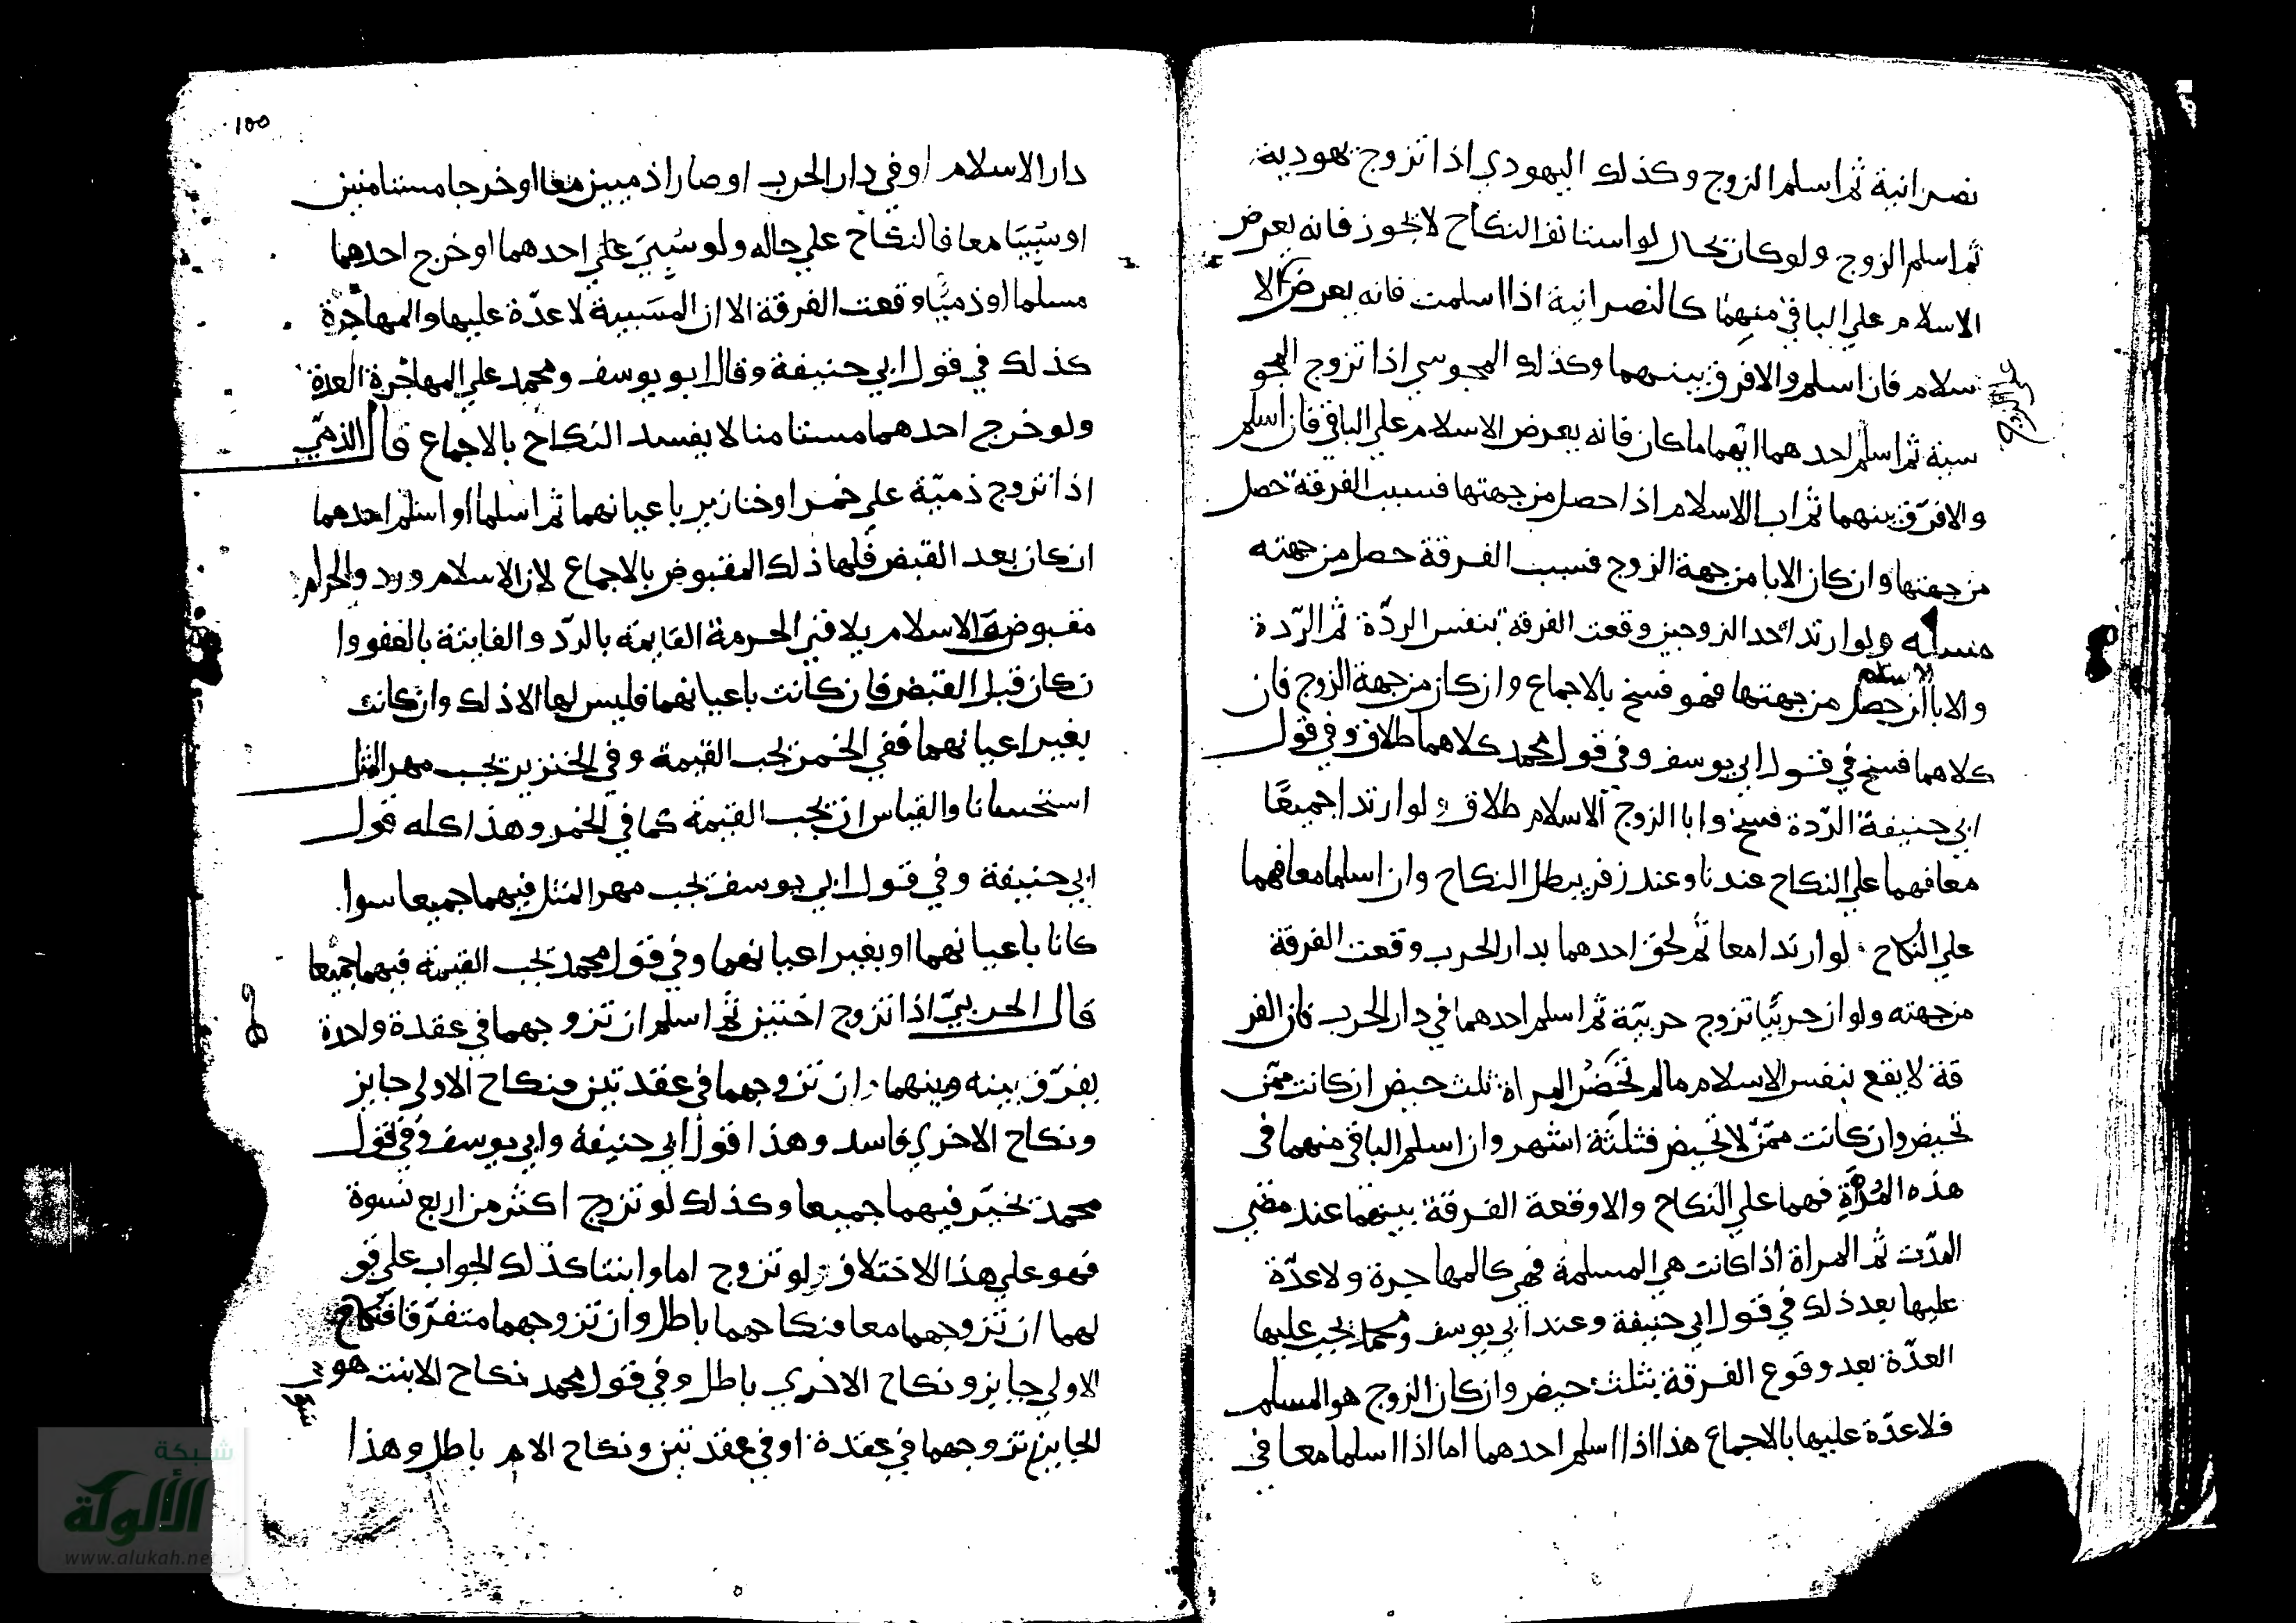 نصرانية ثم اسلم الزوج وكذلك اليهودي اذا تزوج يهودية
ثم اسلم الزوج ولو كان بحال لو استانف النكاح لا يجوز فانه يعرض
الاسلام علي الباقي منهما كالنصرانية اذا اسلمت فانه يعرض الا
سلام فان اسلم والا فرق بينهما وكذلك المجوسي اذا تزوج المجو
علي الزوج
سية ثم اسلم احدهما ايهما ما كان فانه يعرض الاسلام علي الباقي فان اسلم
والا فرق بينهما ثم ابا الاسلام اذا حصل من جهتها فسبب الفرقة حصل
من جهتها وان كان الابا من جهة الزوج فسبب الفرقة حصل من جهته
مسئلة ولو ارتد احد الزوجين وقعت الفرقة بنفس الردّة ثم الردّة
والابا الاسلام ان حصل من جهتها فهو فسخ بالاجماع وان كان من جهة الزوج فان
كلاهما فسخ في قول ابي يوسف وفي قول محمد كلاهما طلاق وفي قول
ابي حنيفة الردّة فسخ وابا الزوج الاسلام طلاق ولو ارتدا جميعًا
معا فهما علي النكاح عندنا وعند زفر يبطل النكاح وان اسلما معا فهما
علي النكاح لو ارتدا معا ثم لحق احدهما بدار الحرب وقعت الفرقة
من جهته ولو ان حربيًّا تزوج حربيّة ثم اسلم احدهما في دار الحرب فان الفر
قة لا يقع بنفس الاسلام ما لم تحض المراة ثلث حيض ان كانت ممّن
تحيض وان كانت ممّن لا تحيض فثلثة اشهر وان اسلم الباقي منهما في
هذه المدة فهما علي النكاح والا وقعة الفرقة بينهما عند مضي
المدّت ثم المراة اذا كانت هي المسلمة فهي كالمهاجرة ولا عدّة
عليها بعد ذلك في قول ابي حنيفة وعند ابي يوسف ومحمد يجب عليها
العدّة بعد وقوع الفرقة بثلث حيض وان كان الزوج هو المسلم
فلا عدّة عليها بالاجماع هذا اذا اسلم احدهما اما اذا اسلما معا في
١٥٥
دار الاسلام او في دار الحرب او صارا ذميين معا او خرجا مستامنين
او سُبِيَا معا فالنكاح علي حاله ولو سُبِيَ علي احدهما او خرج احدهما
مسلما او ذميّا وقعت الفرقة الا ان المسبية لا عدّة عليها والمهاجرة
كذلك في قول ابي حنيفة وقال ابو يوسف ومحمد علي المهاجرة العدة
ولو خرج احدهما مستامنا لا يفسد النكاح بالاجماع قال الذمّي
اذا تزوج ذميّة علي خمر او خنازير باعيانهما ثم اسلما او اسلم احدهما
ان كان بعد القبض فلها ذلك المقبوض بالاجماع لان الاسلام ورد والحرام
مقبوضة الاسلام يلاقي الحرمة القايمة بالردّ والفايتة بالعفو وا
ن كان قبل القبض فان كانت باعيانهما فليس لها الا ذلك وان كانت
بغير اعيانهما ففي الخمر يجب القيمة وفي الخنزير يجب مهر المثل
استحسانا والقياس ان يجب القيمة كما في الخمر وهذا كله قول
ابي حنيفة وفي قول ابي يوسف يجب مهر المثل فيهما جميعا سوا
كانا باعيانهما او بغير اعيانهما وفي قول محمد يجب القيمة فيهما جميعا
قال الحربيّ اذا تزوج اختين ثم اسلم ان تزوجهما في عقدة واحدة
يفرّق بينه وبينهما وان تزوجهما في عقدتين فنكاح الاولي جايز
ونكاح الاخري فاسد وهذا قول ابي حنيفة وابي يوسف وفي قول
محمد يخيّر فيهما جميعا وكذلك لو تزوج اكثر من اربع نسوة
فهو علي هذا الاختلاف ولو تزوج اما وابنتا كذلك الجواب علي قو
لهما ان تزوجهما معا فنكاحهما باطل وان تزوجهما متفرّقا فنكاح
الاولي جايز ونكاح الاخري باطل وفي قول محمد نكاح الابنت هو
سوا
الجايز تزوجهما في عقدة او في عقدتين ونكاح الام باطل وهذا
شبكة
الألوكة
www.alukah.net